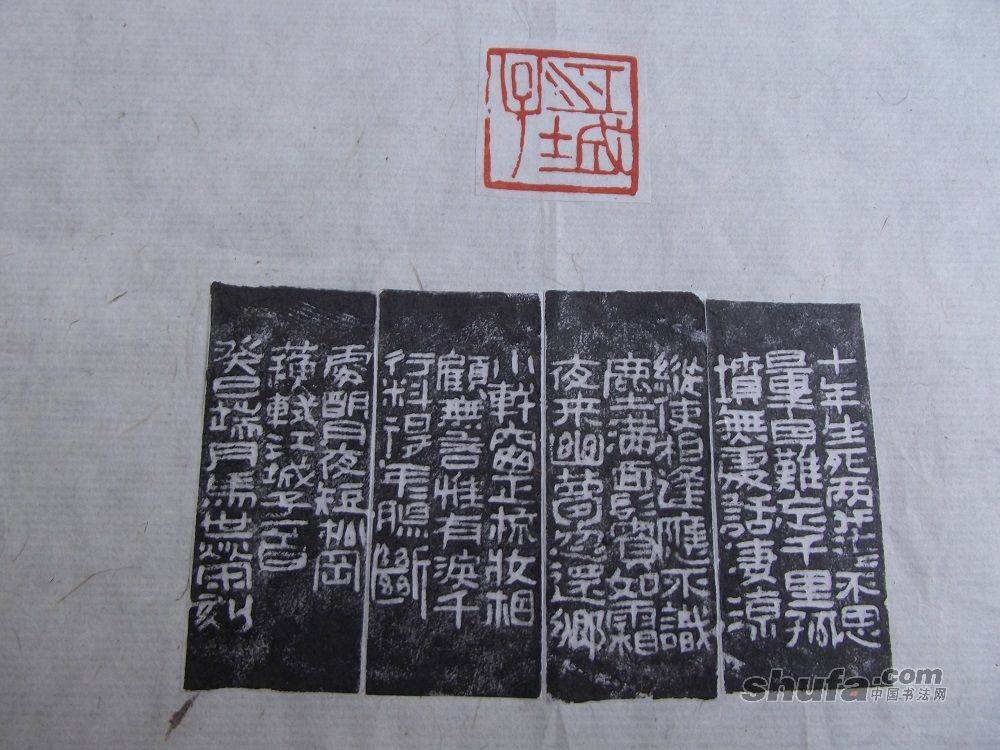 江城
子
十年生死兩茫〻不思
量自難忘千里孤
墳無處話淒涼
縱使相逢應不識
塵滿面鬢如霜
夜來幽夢忽還鄉
小軒窗正梳妝相
顧無言惟有淚千
行料得年腸斷
處明月夜短松岡
蘇軾江城子一首
癸巳端月馬世榮刻
shufa.com
中国书法网